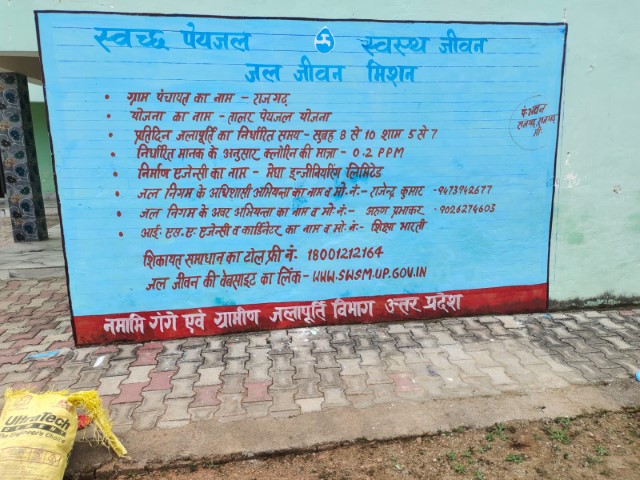 स्वच्छ पेयजल स्वस्थ जीवन
जल जीवन मिशन
• ग्राम पंचायत का नाम - राजगढ़
• योजना का नाम - तालर पेयजल योजना
• प्रतिदिन जलापूर्ति का निर्धारित समय - सुबह 8 से 10 शाम 5 से 7
• निर्धारित मानक के अनुसार क्लोरिन की मात्रा - 0.2 PPM
• निर्माण एजेन्सी का नाम - मेघा इन्जीनियरिंग लिमिटेड
• जल निगम के अधिशासी अभियन्ता का नाम व मो. नं:- राजेन्द्र कुमार - 9473942677
• जल निगम के अवर अभियन्ता का नाम व मो. नं:- अरुण प्रभाकर - 9026274603
• आई. एस. ए. एजेन्सी व कार्डिनेटर का नाम व मो. नं:- शिक्षा भारती
शिकायत समाधान का टोल फ्री नं. 18001212164
जल जीवन की वेबसाइट का लिंक - WWW.SWSM.UP.GOV.IN
नमामि गंगे एवं ग्रामीण जलापूर्ति विभाग उत्तर प्रदेश
UltraTech
CEMENT
The Engineer's Choice